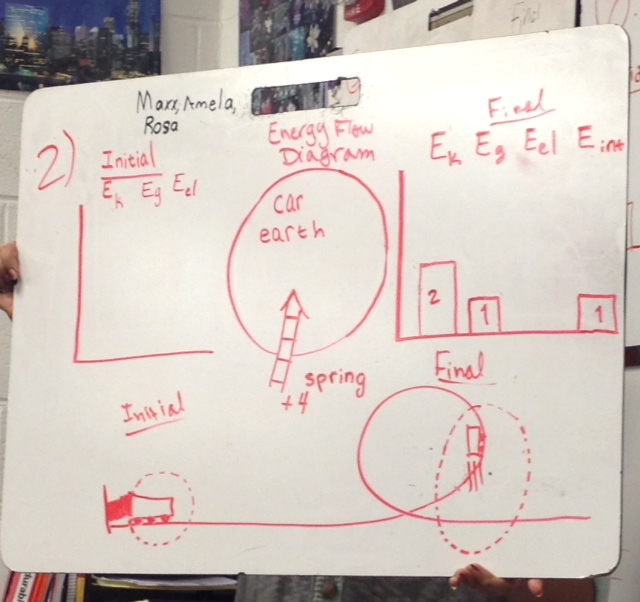 Marx, Amela,
Rosa
2)
Initial
Ek Eg Eel
Energy Flow
Diagram
car
earth
spring
+4
Final
Ek Eg Eel Eint
2
1
1
Initial
Final
Final